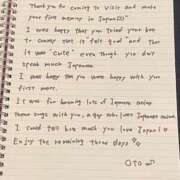 Thank you for coming to visit and make
your first memory in Japan
I was happy that you tried your best
to convey that it "felt good" and that
it was "cute" even though you don't
speak Japanese.
I was happy that you were happy with your
first
It was fun learning lots of Japanese
songs with you, a guy who loves Japanese anime.
I could tell how much you love Japan!
Enjoy the remaining three days
Oto